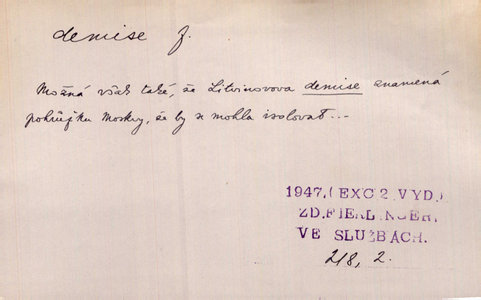 demise f.
Možná však také, že Litvinovova demise znamená
pohrůžku Moskvy, že by se mohla isolovat...
1947. (EXC 2. VYD.)
ZD. FIERLINGER:
VE SLUŽBÁCH.
218, 2.